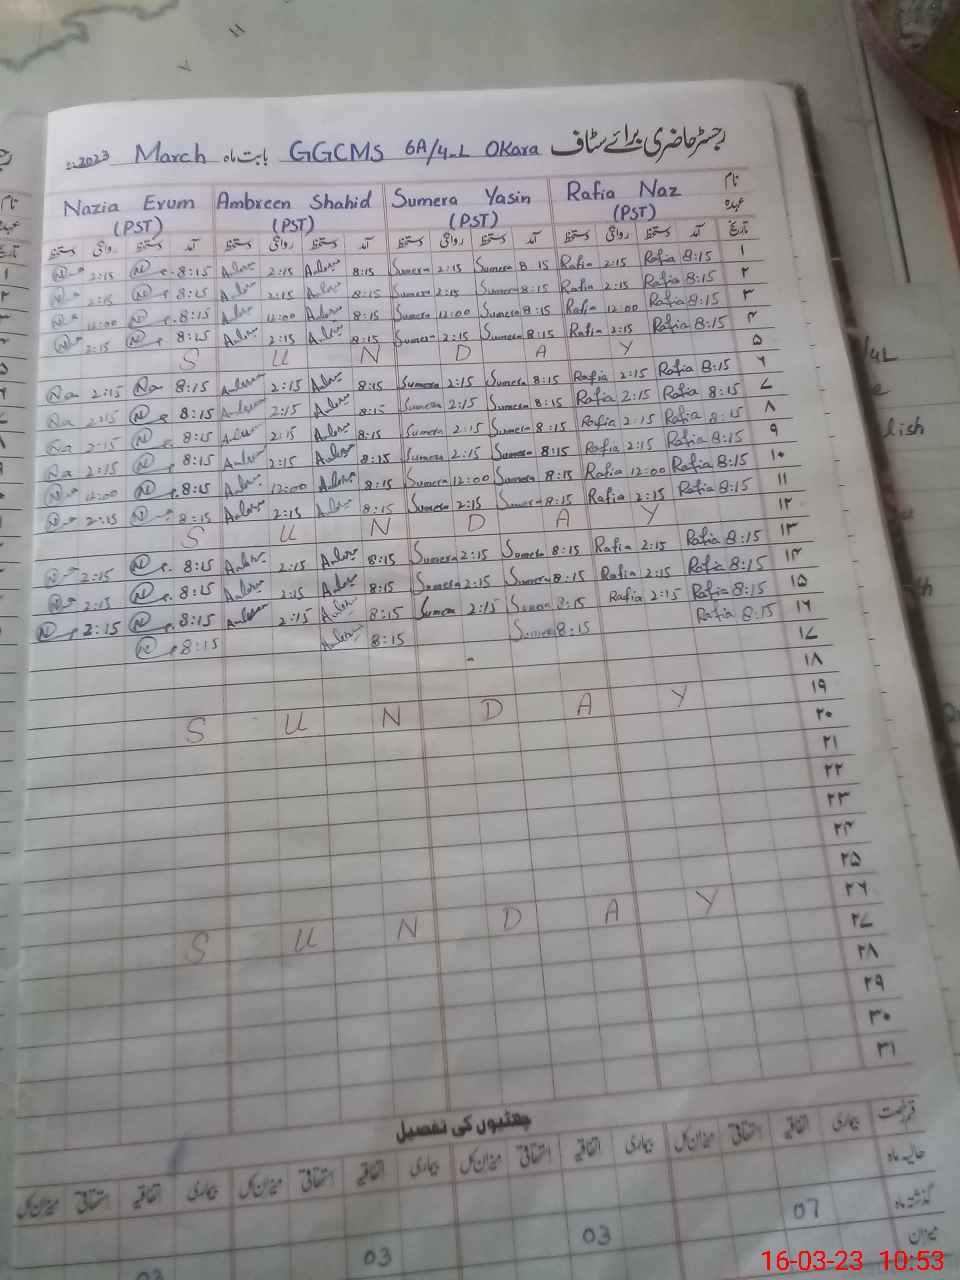 رجسٹر حاضری برائے سٹاف GGCMS 6A/4-L Okara بابت ماہ March 2023
نام Rafia Naz Sumera Yasin Ambreen Shahid Nazia Erum
عہدہ (PST) (PST) (PST) (PST)
تاریخ آمد دستخط روانگی دستخط آمد دستخط روانگی دستخط آمد دستخط روانگی دستخط آمد دستخط روانگی دستخط
۱ 8:15 Rafia 2:15 Rafia 8:15 Sumera 2:15 Sumera 8:15 2:15 8:15 2:15
۲ 8:15 Rafia 2:15 Rafia 8:15 Sumera 2:15 Sumera 8:15 2:15 8:15 2:15
۳ 8:15 Rafia 12:00 Rafia 8:15 Sumera 12:00 Sumera 8:15 12:00 8:15 12:00
۴ 8:15 Rafia 2:15 Rafia 8:15 Sumera 2:15 Sumera 8:15 2:15 8:15 2:15
۵ S U N D A Y
۶ 8:15 Rafia 2:15 Rafia 8:15 Sumera 2:15 Sumera 8:15 2:15 8:15 2:15
۷ 8:15 Rafia 2:15 Rafia 8:15 Sumera 2:15 Sumera 8:15 2:15 8:15 2:15
۸ 8:15 Rafia 2:15 Rafia 8:15 Sumera 2:15 Sumera 8:15 2:15 8:15 2:15
۹ 8:15 Rafia 2:15 Rafia 8:15 Sumera 2:15 Sumera 8:15 2:15 8:15 2:15
۱۰ 8:15 Rafia 12:00 Rafia 8:15 Sumera 12:00 Sumera 8:15 12:00 8:15 12:00
۱۱ 8:15 Rafia 2:15 Rafia 8:15 Sumera 2:15 Sumera 8:15 2:15 8:15 2:15
۱۲ S U N D A Y
۱۳ 8:15 Rafia 2:15 Rafia 8:15 Sumera 2:15 Sumera 8:15 2:15 8:15 2:15
۱۴ 8:15 Rafia 2:15 Rafia 8:15 Sumera 2:15 Sumera 8:15 2:15 8:15 2:15
۱۵ 8:15 Rafia 2:15 Rafia 8:15 Sumera 2:15 Sumera 8:15 2:15 8:15 2:15
۱۶ 8:15 Rafia 8:15 Sumera 8:15 8:15
۱۷
۱۸
۱۹ S U N D A Y
۲۰
۲۱
۲۲
۲۳
۲۴
۲۵
۲۶ S U N D A Y
۲۷
۲۸
۲۹
۳۰
۳۱
چھٹیوں کی تفصیل
قسم رخصت بیماری اتفاقیہ استحقاقی میزان کل بیماری اتفاقیہ استحقاقی میزان کل بیماری اتفاقیہ استحقاقی میزان کل بیماری اتفاقیہ استحقاقی میزان کل
حالیہ ماہ
گذشتہ ماہ 07 03 03 03
میزان
16-03-23 10:53